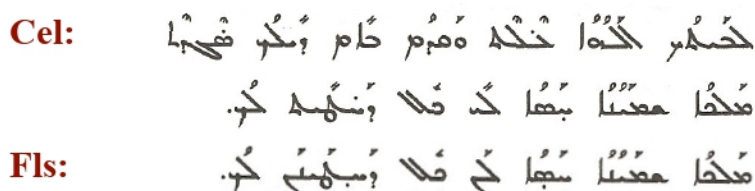 Cel: ܠܒܰܝܬܳܟ ܐܰܠܳܗܳܐ ܥܶܠܶܬ ܘܰܩܕܳܡ ܒܺܐܡ ܕܺܝܠܳܟ ܣܶܓܕܶܬ
ܡܰܠܟܳܐ ܫܡܰܝܳܢܳܐ ܚܰܣܳܐ ܠܺܝ ܟܽܠ ܕܰܚܛܺܝܬ ܠܳܟ.
Fls: ܡܰܠܟܳܐ ܫܡܰܝܳܢܳܐ ܚܰܣܳܐ ܠܰܢ ܟܽܠ ܕܰܚܛܰܝܢܰܢ ܠܳܟ.